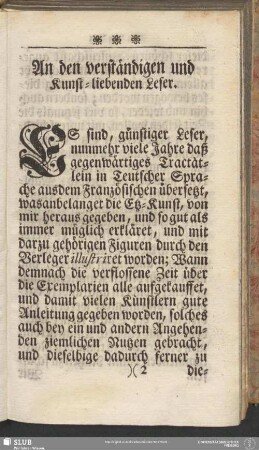 An den verständigen und
Kunst-liebenden Leser.
ES sind, günstiger Leser,
nunmehr viele Jahre daß
gegenwärtiges Tractät-
lein in Teutscher Spra-
che aus dem Französischen übersetzt,
was anbelanget die Etz-Kunst, von
mir heraus gegeben, und so gut als
immer müglich erkläret, und mit
darzu gehörigen Figuren durch den
Verleger illustriret worden; Wann
demnach die verflossene Zeit über
die Exemplarien alle aufgekauffet,
und damit vielen Künstlern gute
Anleitung gegeben worden, solches
auch bey ein und andern Angehen-
den ziemlichen Nutzen gebracht,
und dieselbige dadurch ferner zu
)( 2 die-
SLUB